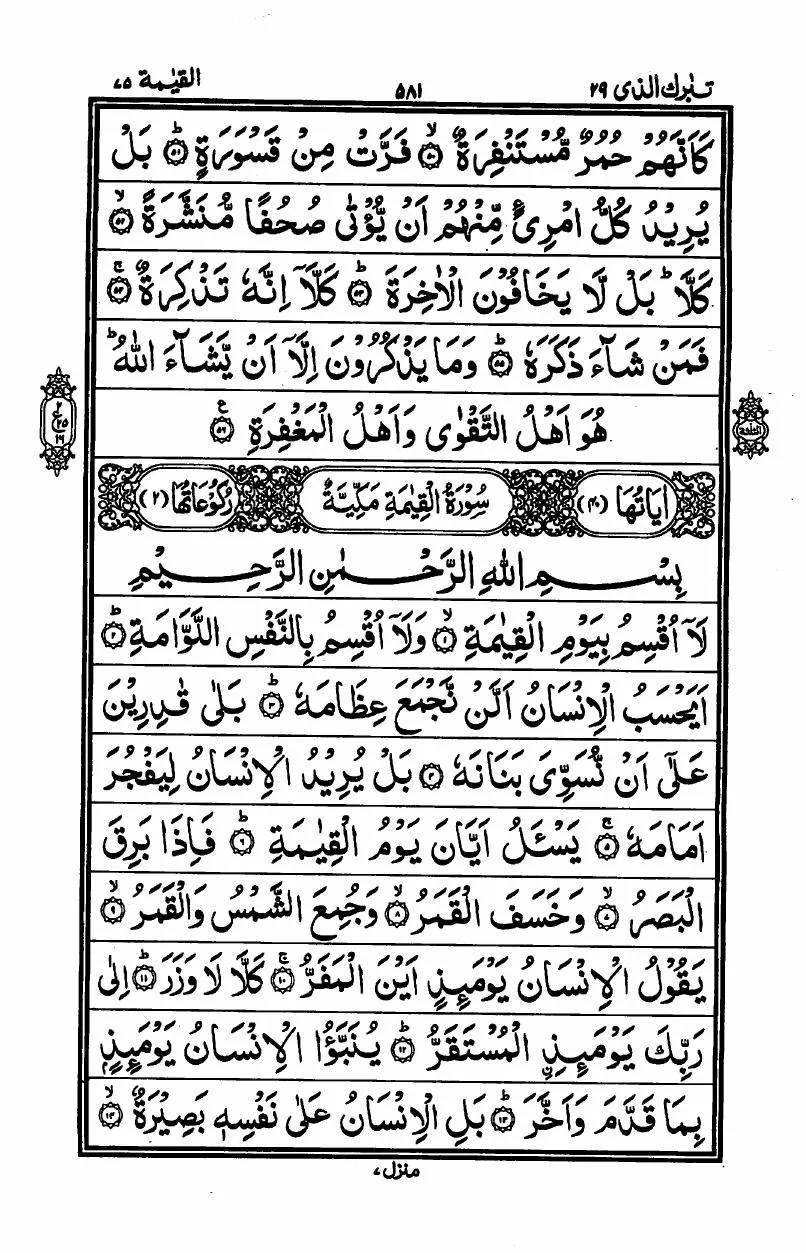 تبٰرك الذی ۲۹
۵۸۱
القیٰمة ۷۵
كَاَنَّهُمْ حُمُرٌ مُّسْتَنْفِرَةٌ ۙ﴿۵۰﴾ فَرَّتْ مِنْ قَسْوَرَةٍ ؕ﴿۵۱﴾ بَلْ
يُرِيْدُ كُلُّ امْرِئٍ مِّنْهُمْ اَنْ يُّؤْتٰى صُحُفًا مُّنَشَّرَةً ۙ﴿۵۲﴾
كَلَّا ؕ بَلْ لَّا يَخَافُوْنَ الْاٰخِرَةَ ؕ﴿۵۳﴾ كَلَّاۤ اِنَّهٗ تَذْكِرَةٌ ۚ﴿۵۴﴾
فَمَنْ شَآءَ ذَكَرَهٗ ؕ﴿۵۵﴾ وَمَا يَذْكُرُوْنَ اِلَّاۤ اَنْ يَّشَآءَ اللّٰهُ ؕ
هُوَ اَهْلُ التَّقْوٰى وَاَهْلُ الْمَغْفِرَةِ ﴿۵۶﴾ ع
۲
ع
۲۵
۱۶
الثلثة
اٰيَاتُهَا (۴۰)
سُوْرَةُ الْقِيٰمَةِ مَكِّيَّةٌ
رُكُوْعَاتُهَا (۲)
بِسْمِ اللّٰهِ الرَّحْمٰنِ الرَّحِيْمِ
لَاۤ اُقْسِمُ بِيَوْمِ الْقِيٰمَةِ ۙ﴿۱﴾ وَلَاۤ اُقْسِمُ بِالنَّفْسِ اللَّوَّامَةِ ؕ﴿۲﴾
اَيَحْسَبُ الْاِنْسَانُ اَلَّنْ نَّجْمَعَ عِظَامَهٗ ؕ﴿۳﴾ بَلٰى قٰدِرِيْنَ
عَلٰۤى اَنْ نُّسَوِّىَ بَنَانَهٗ ﴿۴﴾ بَلْ يُرِيْدُ الْاِنْسَانُ لِيَفْجُرَ
اَمَامَهٗ ۚ﴿۵﴾ يَسْـَٔلُ اَيَّانَ يَوْمُ الْقِيٰمَةِ ؕ﴿۶﴾ فَاِذَا بَرِقَ
الْبَصَرُ ۙ﴿۷﴾ وَخَسَفَ الْقَمَرُ ۙ﴿۸﴾ وَجُمِعَ الشَّمْسُ وَالْقَمَرُ ۙ﴿۹﴾
يَقُوْلُ الْاِنْسَانُ يَوْمَئِذٍ اَيْنَ الْمَفَرُّ ۚ﴿۱۰﴾ كَلَّا لَا وَزَرَ ؕ﴿۱۱﴾ اِلٰى
رَبِّكَ يَوْمَئِذِ ۨالْمُسْتَقَرُّ ؕ﴿۱۲﴾ يُنَبَّؤُا الْاِنْسَانُ يَوْمَئِذٍۭ
بِمَا قَدَّمَ وَاَخَّرَ ؕ﴿۱۳﴾ بَلِ الْاِنْسَانُ عَلٰى نَفْسِهٖ بَصِيْرَةٌ ۙ﴿۱۴﴾
منزل ۷